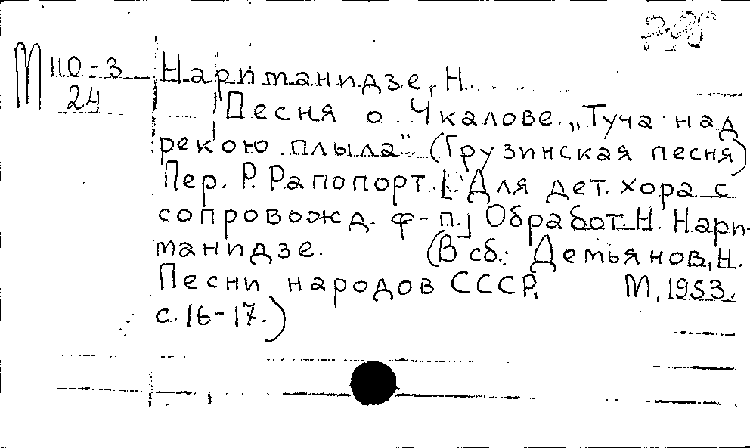 М 110-3 Нариманидзе, Н.
24
Песня о Чкалове „Туча над
рекою плыла" (Грузинская песня)
Пер. Р. Рапопорт. [Для дет. хора с
сопровожд. ф-п.] Обработ. Н. Нари-
манидзе. (В сб.: Демьянов, Н.
Песни народов СССР. М., 1953.
с. 16-17.)